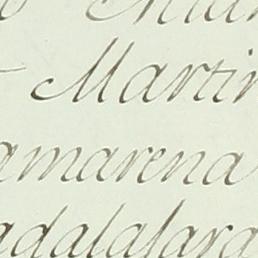 Martin
amarena
adalajara